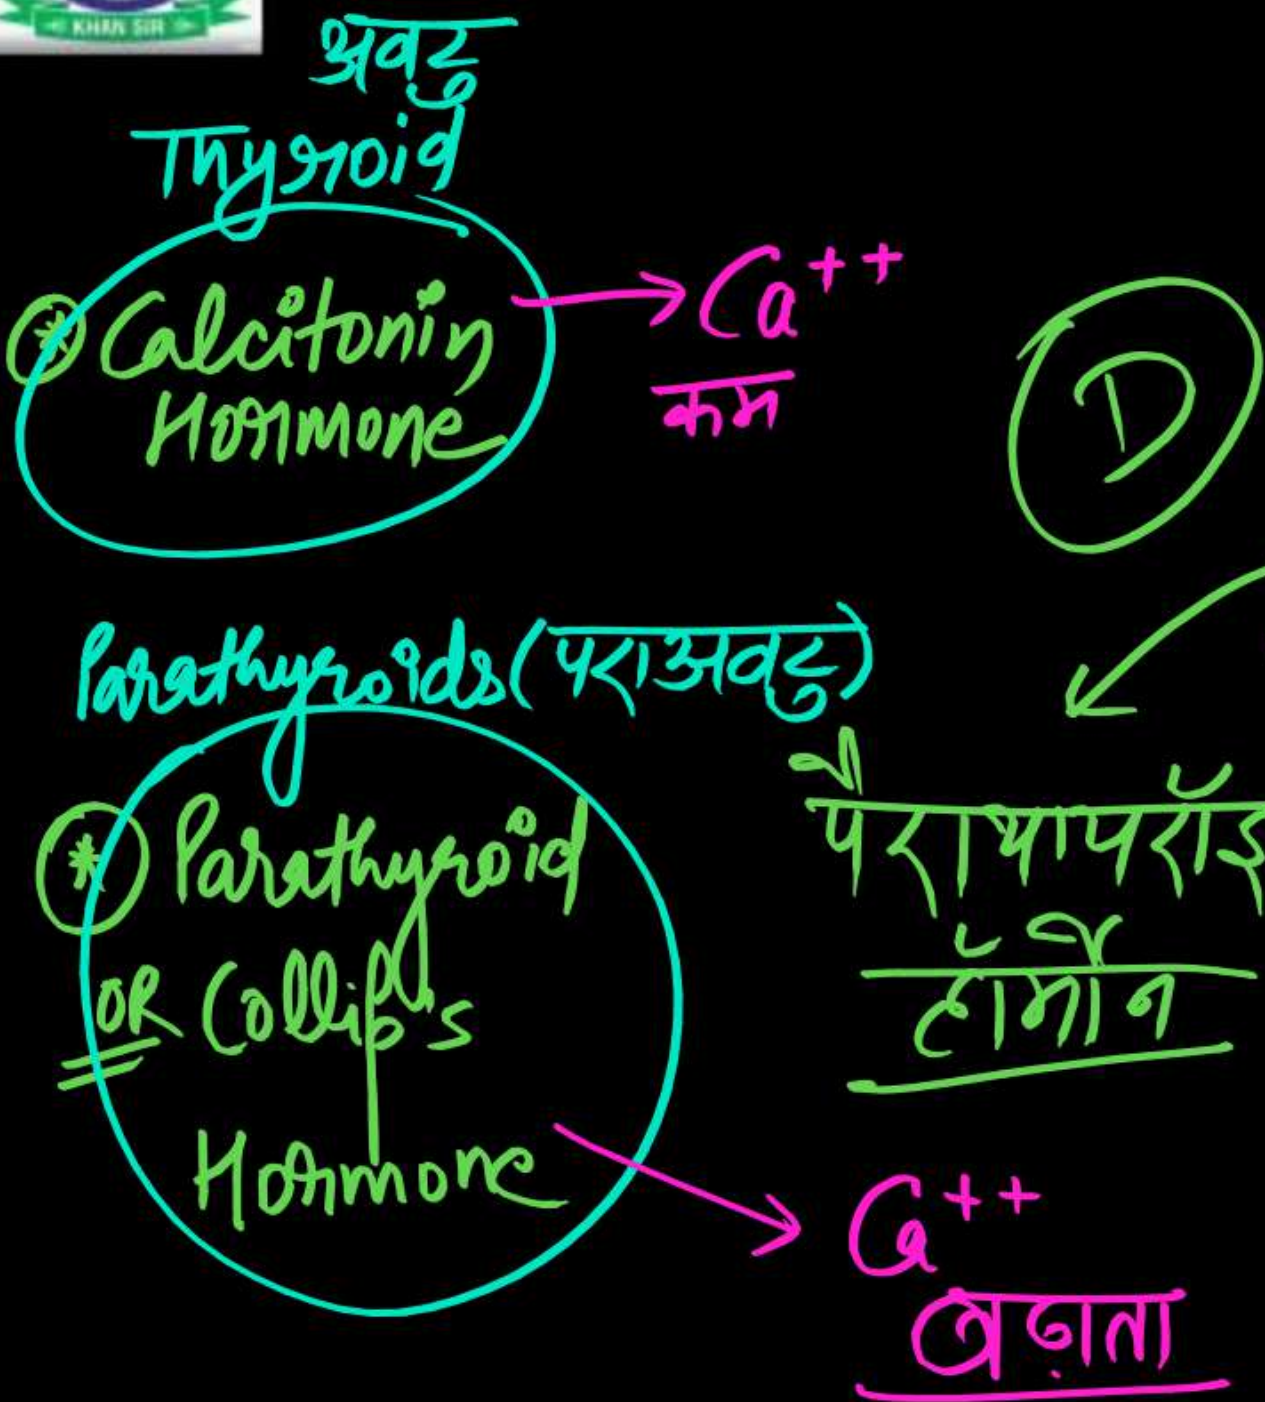 KHAN SIR
अवटु
Thyroid
* Calcitonin
Hormone
→ Ca++
कम
D
Parathyroids (पराअवटु)
* Parathyroid
OR Collip's
Hormone
हॉर्मोन
→ Ca++
बढ़ाता